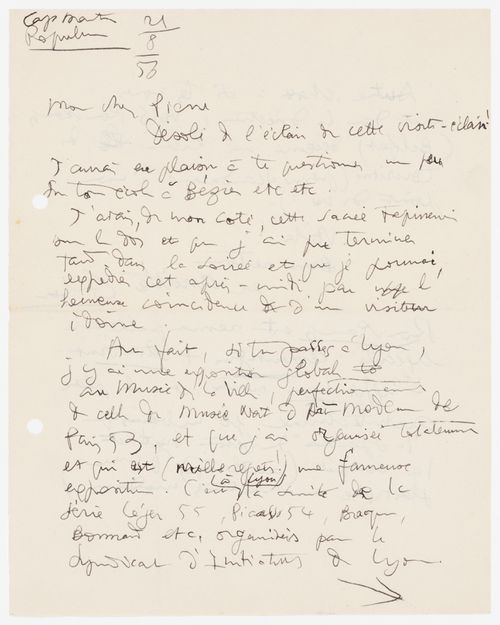 Cap Martin
Roquebrune
21
8
56
mon cher Pierre
Désolé de l'éclair de cette visite-éclair!
J'aurais eu plaisir à te questionner un peu
sur ton école à Béziers etc etc.
J'avais, de mon coté, cette sacrée
sur le dos et que j'ai pu terminer
tard dans la soirée et que je pourrai
expédier cet après-midi par l'
heureuse coincidence d'un visiteur
idoine.
Au fait, si tu passes à Lyon,
j'y ai une exposition globale
au Musée de la Ville,
de celle du Musée Nat d'Art Moderne de
Paris 53, et que j'ai organisée totalement
et qui est (merci!) une fameuse
(à Lyon)
exposition. C'est la suite de la
série Léger 55, Picasso 54, Braque,
Bonnard etc, organisées par le
Syndicat d'Initiatives de Lyon.